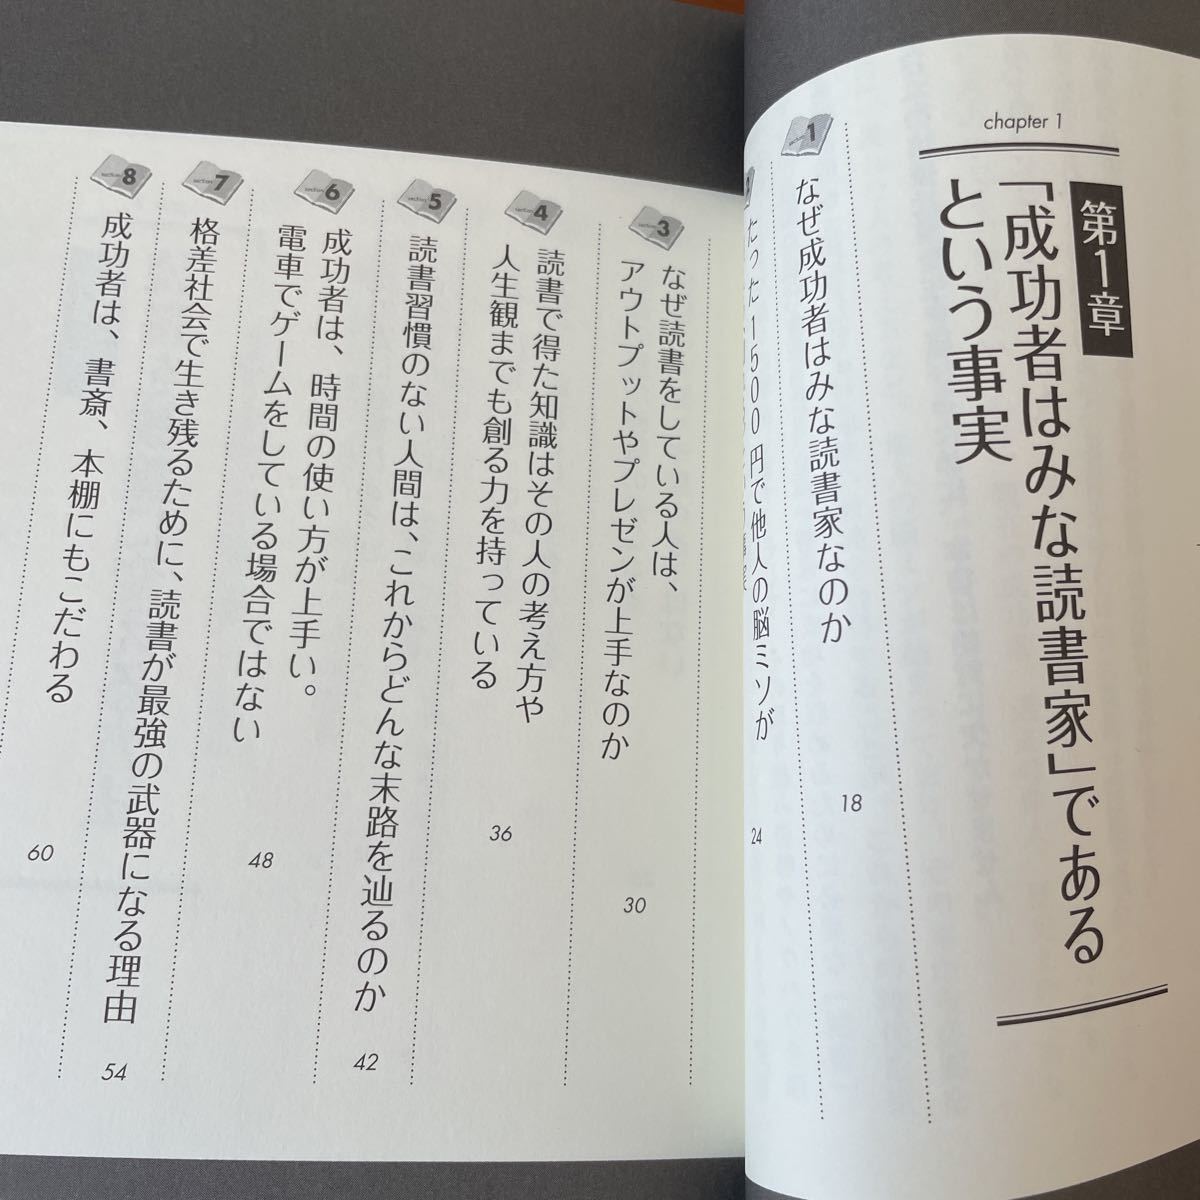 chapter 1
第1章
「成功者はみな読書家」である
という事実
section 1
なぜ成功者はみな読書家なのか
18
たった1500円で他人の脳ミソが
24
section 3
なぜ読書をしている人は、
アウトプットやプレゼンが上手なのか
30
section 4
読書で得た知識はその人の考え方や
人生観までも創る力を持っている
36
section 5
読書習慣のない人間は、これからどんな末路を辿るのか
42
section 6
成功者は、時間の使い方が上手い。
電車でゲームをしている場合ではない
48
section 7
格差社会で生き残るために、読書が最強の武器になる理由
54
section 8
成功者は、書斎、本棚にもこだわる
60